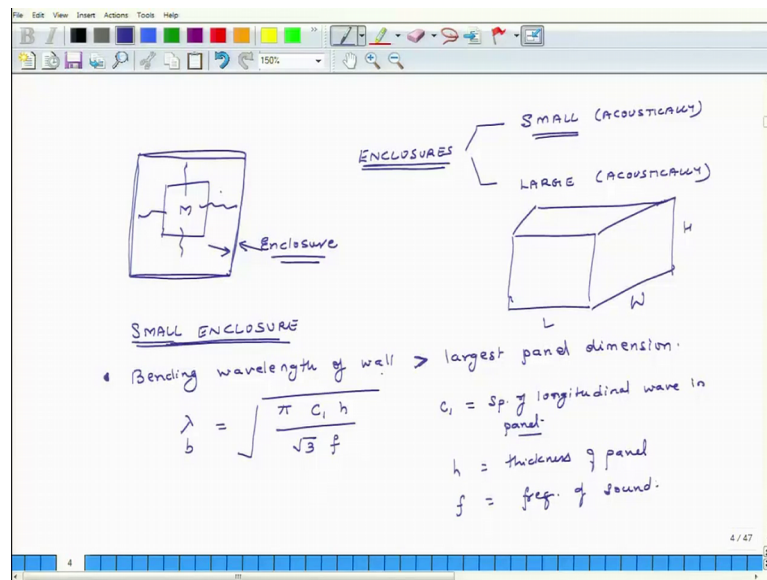 File Edit View Insert Actions Tools Help
B I
150%
ENCLOSURES
SMALL (ACOUSTICALLY)
LARGE (ACOUSTICALLY)
M
Enclosure
H
W
L
SMALL ENCLOSURE
• Bending wavelength of wall > largest panel dimension.
λb = √(π C₁ h / √3 f)
C₁ = Sp. of longitudinal wave in
panel.
h = thickness of panel
f = freq. of sound.
4 / 47
4